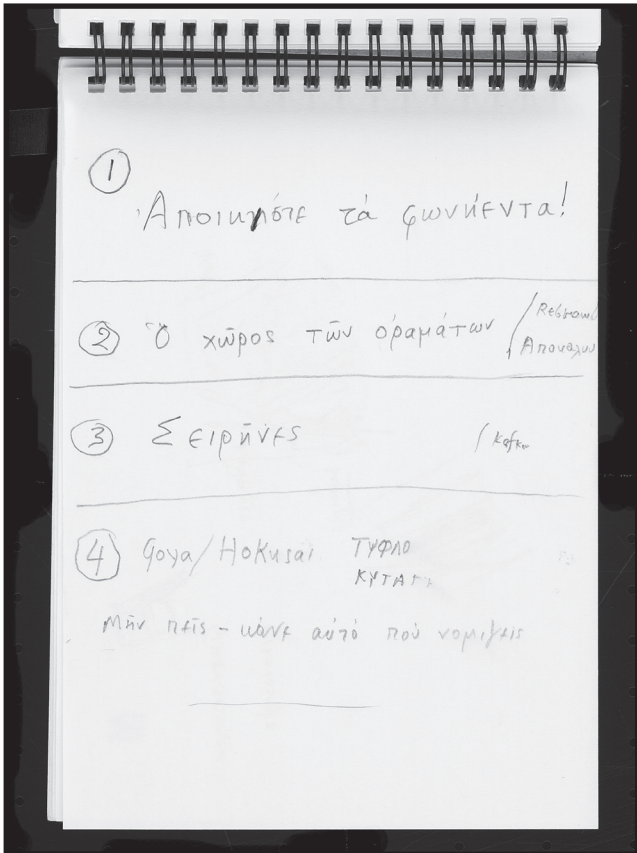 ①
Ἀποικῆστε τά φωνήεντα!
② Ὁ χῶρος τῶν ὁραμάτων /
③ Σειρῆνες / Kafka
④ Goya/Hokusai ΤΥΦΛΟ
Μήν πεῖς - κάνε αὐτό πού νομίζεις